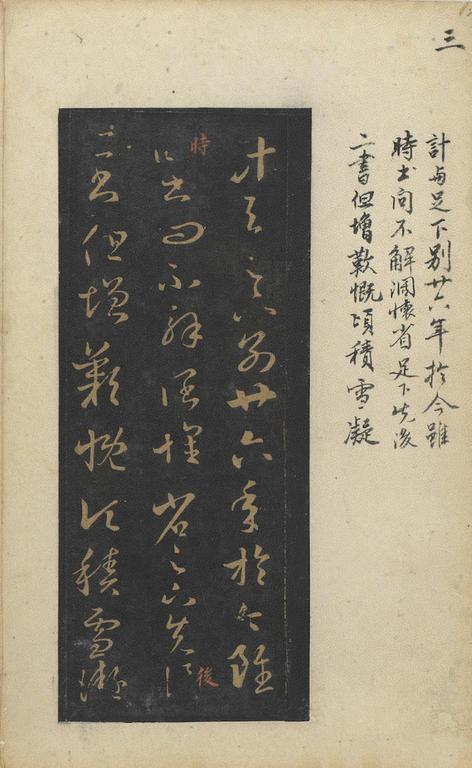 三
計與足下別廿六年於今雖
時書問不解闊懷省足下先後
二書但增歎慨頃積雪凝
計與足下別廿六年於今雖
時書問不解闊懷省足下先後
時
後
二書但增歎慨頃積雪凝